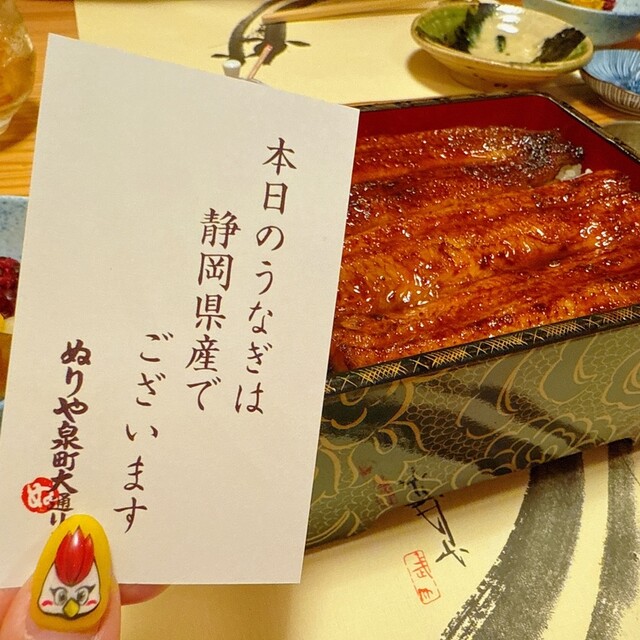 本日のうなぎは
静岡県産で
ございます
ぬりや泉町大通り